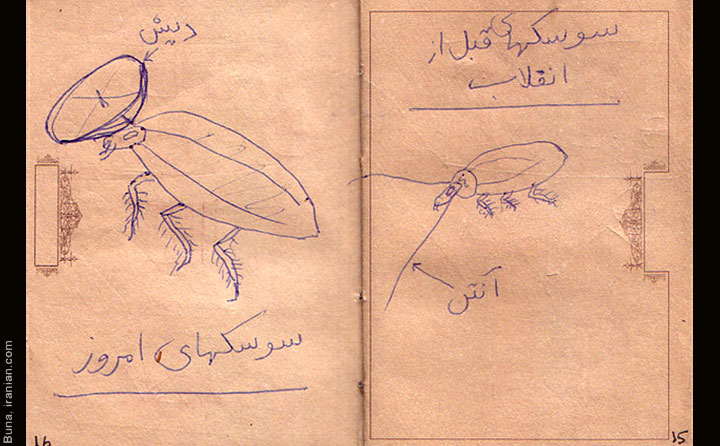 سوسکهای قبل از
انقلاب
آنتن
15
دیش
سوسکهای امروز
16
Buna, iranian.com